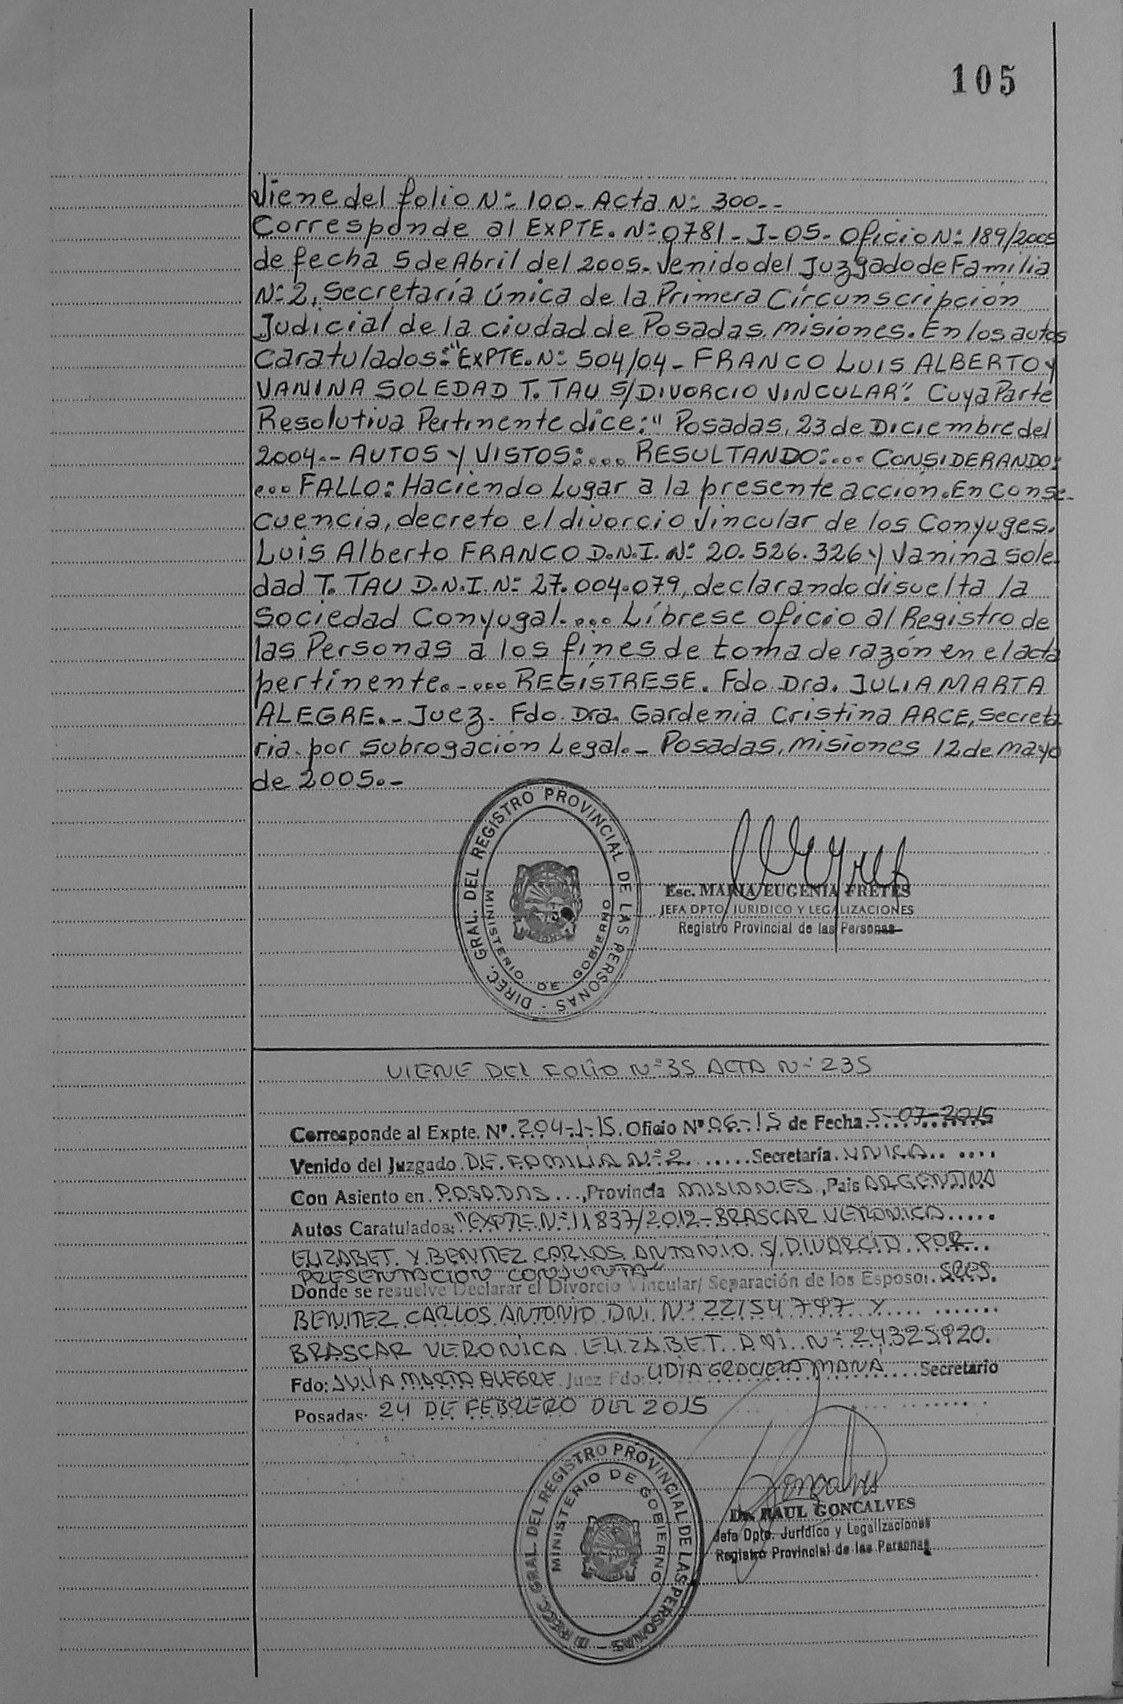 105
Viene del folio Nº 100- Acta Nº 300.-
Corresponde al EXPTE. Nº 0781-J-05- Oficio Nº 189/2005
de fecha 5 de Abril del 2005- Venido del Juzgado de Familia
Nº 2, Secretaría Única de la Primera Circunscripción
Judicial de la ciudad de Posadas, Misiones. En los autos
Caratulados: "EXPTE. Nº 504/04- FRANCO LUIS ALBERTO y
VANINA SOLEDAD T. TAU S/DIVORCIO VINCULAR". Cuya Parte
Resolutiva Pertinente dice: "Posadas, 23 de Diciembre del
2004.- AUTOS Y VISTOS:... RESULTANDO:... CONSIDERANDO:
... FALLO: Haciendo Lugar a la presente acción. En Conse-
cuencia, decreto el divorcio Vincular de los Conyuges.
Luis Alberto FRANCO D.N.I. Nº 20.526.326 y Vanina Sole
dad T. TAU D.N.I. Nº 27.004.079, declarando disuelta la
Sociedad Conyugal.... Líbrese oficio al Registro de
las Personas a los fines de toma de razón en el acta
pertinente.-... REGÍSTRESE. Fdo Dra. JULIA MARTA
ALEGRE.- Juez. Fdo. Dra. Gardenia Cristina ARCE, Secreta
ria. por Subrogación Legal.- Posadas, Misiones 12 de mayo
de 2005.-
DIREC. GRAL. DEL REGISTRO PROVINCIAL DE LAS PERSONAS -
MINISTERIO DE GOBIERNO
Esc. MARIA EUGENIA FRETES
JEFA DPTO. JURIDICO Y LEGALIZACIONES
Registro Provincial de las Personas
VIENE DEL FOLIO Nº 35 ACTA Nº 235
Corresponde al Expte. Nº. 204-J-15. Oficio Nº 06-15 de Fecha 5-07-2015
Venido del Juzgado DE FAMILIA Nº 2 ...... Secretaría. UNICA.. ....
Con Asiento en POSADAS..., Provincia MISIONES, Pais ARGENTINA
Autos Caratulados: "EXPTE. Nº 11837/2012- BRASCAR VERONICA.....
ELIZABET. Y BENITEZ CARLOS ANTONIO S/DIVORCIO POR...
PRESENTACION CONJUNTA"
Donde se resuelve Declarar el Divorcio Vincular/ Separación de los Esposo: . SRES.
BENITEZ CARLOS ANTONIO DNI. Nº 22154797 Y.... .......
BRASCAR VERONICA ELIZABET. DNI. Nº 24325920.
Fdo: JULIA MARTA ALEGRE. Juez Fdo: LIDIA GRACIELA MANA .... Secretario
Posadas. 24 DE FEBRERO DEL 2015
DIREC. GRAL. DEL REGISTRO PROVINCIAL DE LAS PERSONAS -
MINISTERIO DE GOBIERNO
Dr. RAUL GONCALVES
Jefe Dpto. Jurídico y Legalizaciones
Registro Provincial de las Personas